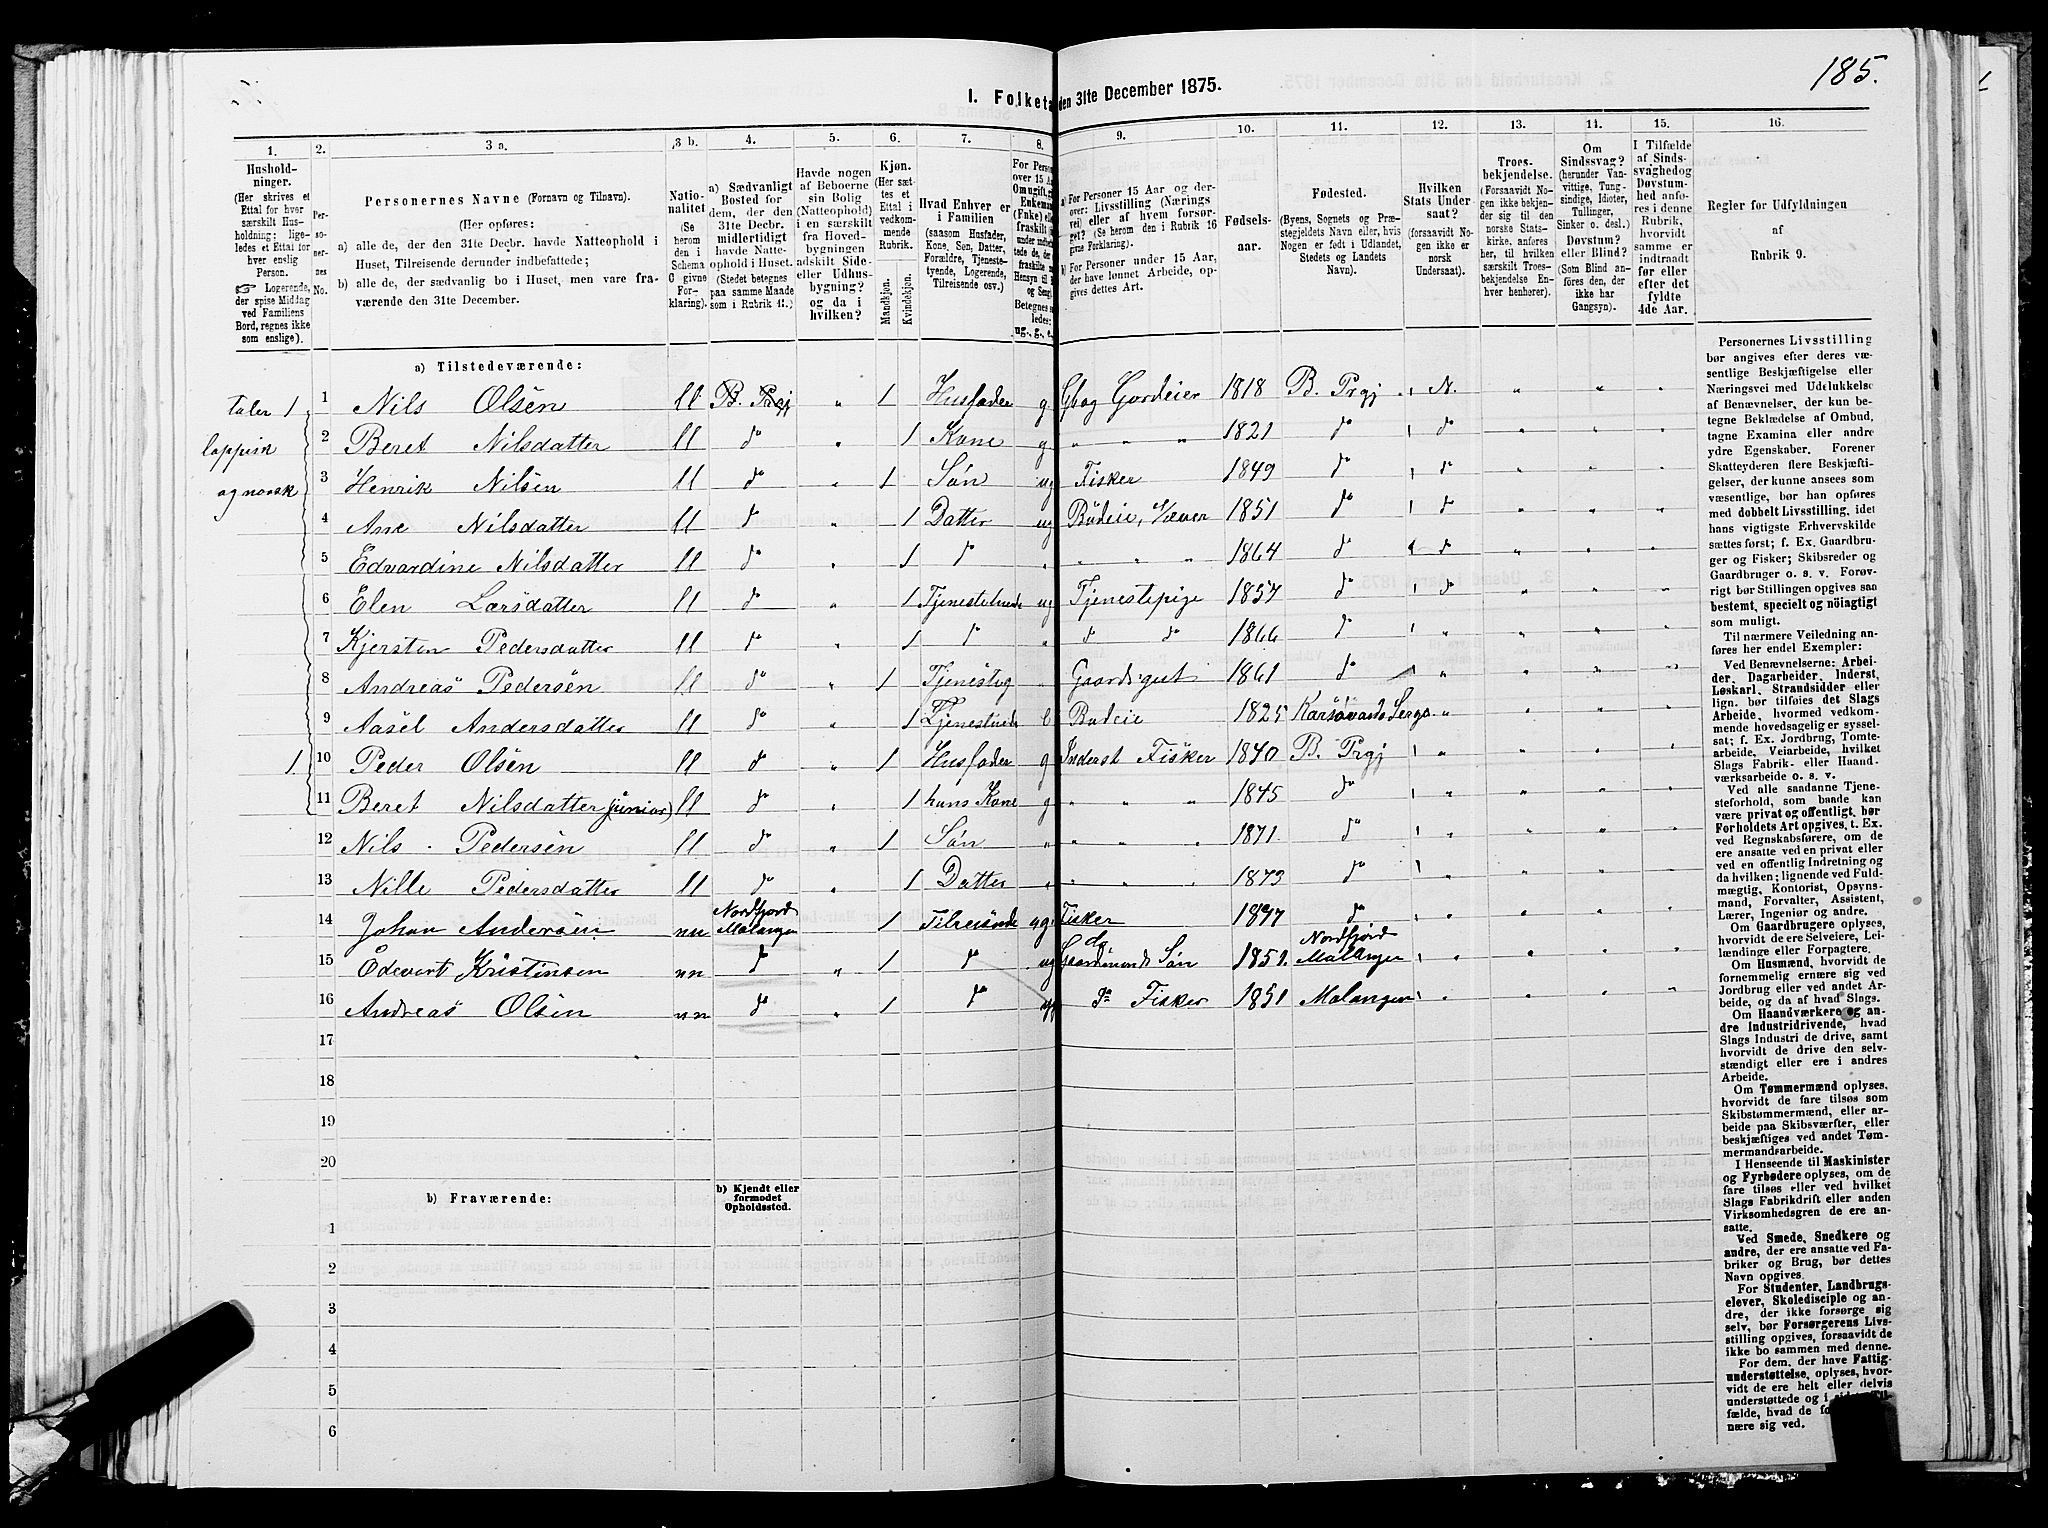 185.
I. Folketæ den 31te December 1875.
1. 2. 3 a. 3 b. 4. 5. 6. 7. 8. 9. 10. 11. 12. 13. 14. 15. 16.
Hushold-
ninger.
(Her skrives et
Ettal for hver
særskilt Hus-
holdning; lige-
ledes et Ettal for
hver enslig
Person.
☞ Logerende,
der spise Middag
ved Familiens
Bord, regnes ikke
som enslige).
Per-
so-
ner-
nes
No.
Personernes Navne (Fornavn og Tilnavn).
(Her opføres:
a) alle de, der den 31te Decbr. havde Natteophold i
Huset, Tilreisende derunder indbefattede;
b) alle de, der sædvanlig bo i Huset, men vare fra-
værende den 31te December.
Natio-
nalitet
(Se
herom
den i
Schema
C givne
For-
klaring).
a) Sædvanligt
Bosted for
dem, der den
31te Decbr.
midlertidigt
havde Natte-
ophold i Huset.
(Stedet betegnes
paa samme Maade
som i Rubrik 11.)
Havde nogen
af Beboerne
sin Bolig
(Natteophold)
i en særskilt
fra Hoved-
bygningen
adskilt Side-
eller Udhus-
bygning?
og da i
hvilken?
Kjøn.
(Her sæt-
tes et
Ettal i
vedkom-
mende
Rubrik.
Mandkjøn.
Kvindekjøn.
Hvad Enhver er
i Familien
(saasom Husfader,
Kone, Søn, Datter,
Forældre, Tjeneste-
tyende, Logerende,
Tilreisende osv.)
For Perso
over 15 A
Om ugift, g
Enkema
(Fnke) ell
fraskilt
ug., g., e.
a) For Personer 15 Aar og der-
over: Livsstilling (Nærings
vei) eller af hvem forsør-
get? (Se herom den i Rubrik 16
givne Forklaring).
b) For Personer under 15 Aar,
der have lønnet Arbeide, op-
gives dettes Art.
Fødsels-
aar.
Fødested.
(Byens, Sognets og Præ-
stegjeldets Navn eller, hvis
Nogen er født i Udlandet,
Stedets og Landets
Navn).
Hvilken
Stats Under-
saat?
(forsaavidt No-
gen ikke er
norsk
Undersaat).
Troes-
bekjendelse.
(Forsaavidt No-
gen ikke bekjen-
der sig til den
norske Stats-
kirke. anføres
her, til hvilken
særskilt Troes-
bekjendelse En-
hver henhører).
Om
Sindssvag?
(herunder Van-
vittige, Tung-
sindige, Idioter,
Tullinger,
Sinker o. desl.)
Døvstum?
eller Blind?
(Som Blind an-
føres den, der
ikke har
Gangsyn).
I Tilfælde
af Sinds-
svaghed og
Døvstum-
hed anfø-
res i denne
Rubrik,
hvorvidt
samme er
indtraadt
før eller
efter det
fyldte
4de Aar.
Regler for Udfyldningen
af
Rubrik 9.
a) Tilstedeværende:
taler 1
lappisk
og norsk
1 Nils Olsen ll B. Prgj " 1 Husfader g Gbog Gardeier 1818 B. Prgj N. " " "
2 Beret Nilsdatter ll do " 1 Kone g " " " 1821 do do " " "
3 Henrik Nilsen ll do " 1 Søn ug Fisker 1849 do do " " "
4 Ane Nilsdatter ll do 1 Datter ug Budeie, Væver 1851 do do " " "
5 Edvardine Nilsdatter ll do " 1 do " " " 1864 do do " " "
6 Elen Larsdatter ll do " 1 Tjenestetinde ug Tjenestepige 1857 do do " " "
7 Kjersten Pedersdatter ll do " 1 do " do do 1866 do " " " "
8 Andreas Pedersen ll do " 1 Tjenesteg " Gaardsgut 1861 do " " " "
9 Aasel Andersdatter ll do " 1 Tjenestinde e Budeie 1825 " " " "
1 10 Peder Olsen ll do " 1 Husfader g Inderst Fisker 1840 B. Prgj " " " "
11 Beret Nilsdatter (junior) ll do " 1 hans Kone g " " " 1845 do " " " "
12 Nils Pedersen ll do " 1 Søn " " " " 1871. do " " " "
13 Nille Pedersdatter ll do " 1 Datter " " " " 1873 do " " " "
14 Johan Andersen nn Nordfjord Malangen 1 Tilreisende ug. Fisker 1847 do " " " "
15 Edevart Kristinsen nn do " 1 do ug do Gaardmands Søn 1851. Nordfjord Malangen " " " "
16 Andreas Olsen nn do " 1 do ug do Fisker 1851 Malangen " " " "
17
18
19
20
b) Fraværende:
b) Kjendt eller
formodet
Opholdssted.
1
2
3
4
5
6
Personernes Livsstilling
bør angives efter deres væ-
sentlige Beskjæftigelse eller
Næringsvei med Udelukkelse
af Benævnelser, der kun be-
tegne Beklædelse af Ombud,
tagne Examina eller andre
ydre Egenskaber. Forener
Skatteyderen flere Beskjæfti-
gelser, der kunne ansees som
væsentlige, bør han opføres
med dobbelt Livsstilling, idet
hans vigtigste Erhvervskilde
sættes først; f. Ex. Gaardbru-
ger og Fisker; Skibsreder og
Gaardbruger o. s. v. Forøv-
rigt bør Stillingen opgives saa
bestemt, specielt og nöiagtigt
som muligt.
Til nærmere Veiledning an-
føres her endel Exempler:
Ved Benævnelserne: Arbei-
der, Dagarbeider, Inderst,
Løskarl, Strandsidder eller
lign. bør tilføies det Slags
Arbeide, hvormed vedkom-
mende hovedsagelig er syssel-
sat; f. Ex. Jordbrug, Tomte-
arbeide, Veiarbeide, hvilket
Slags Fabrik- eller Haand-
værksarbeide o. s. v.
Ved alle saadanne Tjene-
steforhold, som baade kan
være privat og offentligt, bør
Forholdets Art opgives, t. Ex.
ved Regnskabsførere, om de
ere ansatte ved en privat eller
ved en offentlig Indretning og
da hvilken; lignende ved Fuld-
mægtig, Kontorist, Opsyns-
mand, Forvalter, Assistent,
Lærer, Ingeniør og andre.
Om Gaardbrugere oplyses,
hvorvidt de ere Selveiere, Lei-
lændinge eller Forpagtere.
Om Husmænd, hvorvidt de
fornemmelig ernære sig ved
Jordbrug eller ved andet Ar-
beide, og da af hvad Slags.
Om Haandværkere og an-
dre Industridrivende, hvad
Slags Industri de drive, samt
hvorvidt de drive den selv-
stændigt eller ere i andres
Arbeide.
Om Tømmermænd oplyses,
hvorvidt de fare tilsøs som
Skibstømmermænd, eller ar-
beide paa Skibsværfter, eller
beskjæftiges ved andet Tøm-
mermandsarbeide.
I Henseende til Maskinister
og Fyrbødere oplyses, om de
fare tilsøs eller ved hvilket
Slags Fabrikdrift eller anden
Virksomhedsgren de ere an-
satte.
Ved Smede, Snedkere og
andre, der ere ansatte ved Fa-
briker og Brug, bør dettes
Navn opgives.
For Studenter, Landbrugs-
elever, Skoledisciple og an-
dre, der ikke forsørge sig
selv, bør Forsørgerens Livs-
stilling opgives, forsaavidt de
ikke bo sammen med denne.
For dem, der have Fattig-
understøttelse, oplyses, hvor-
vidt de ere helt eller delvis
understøttede og i
fælde, hvad de
nære sig ved.